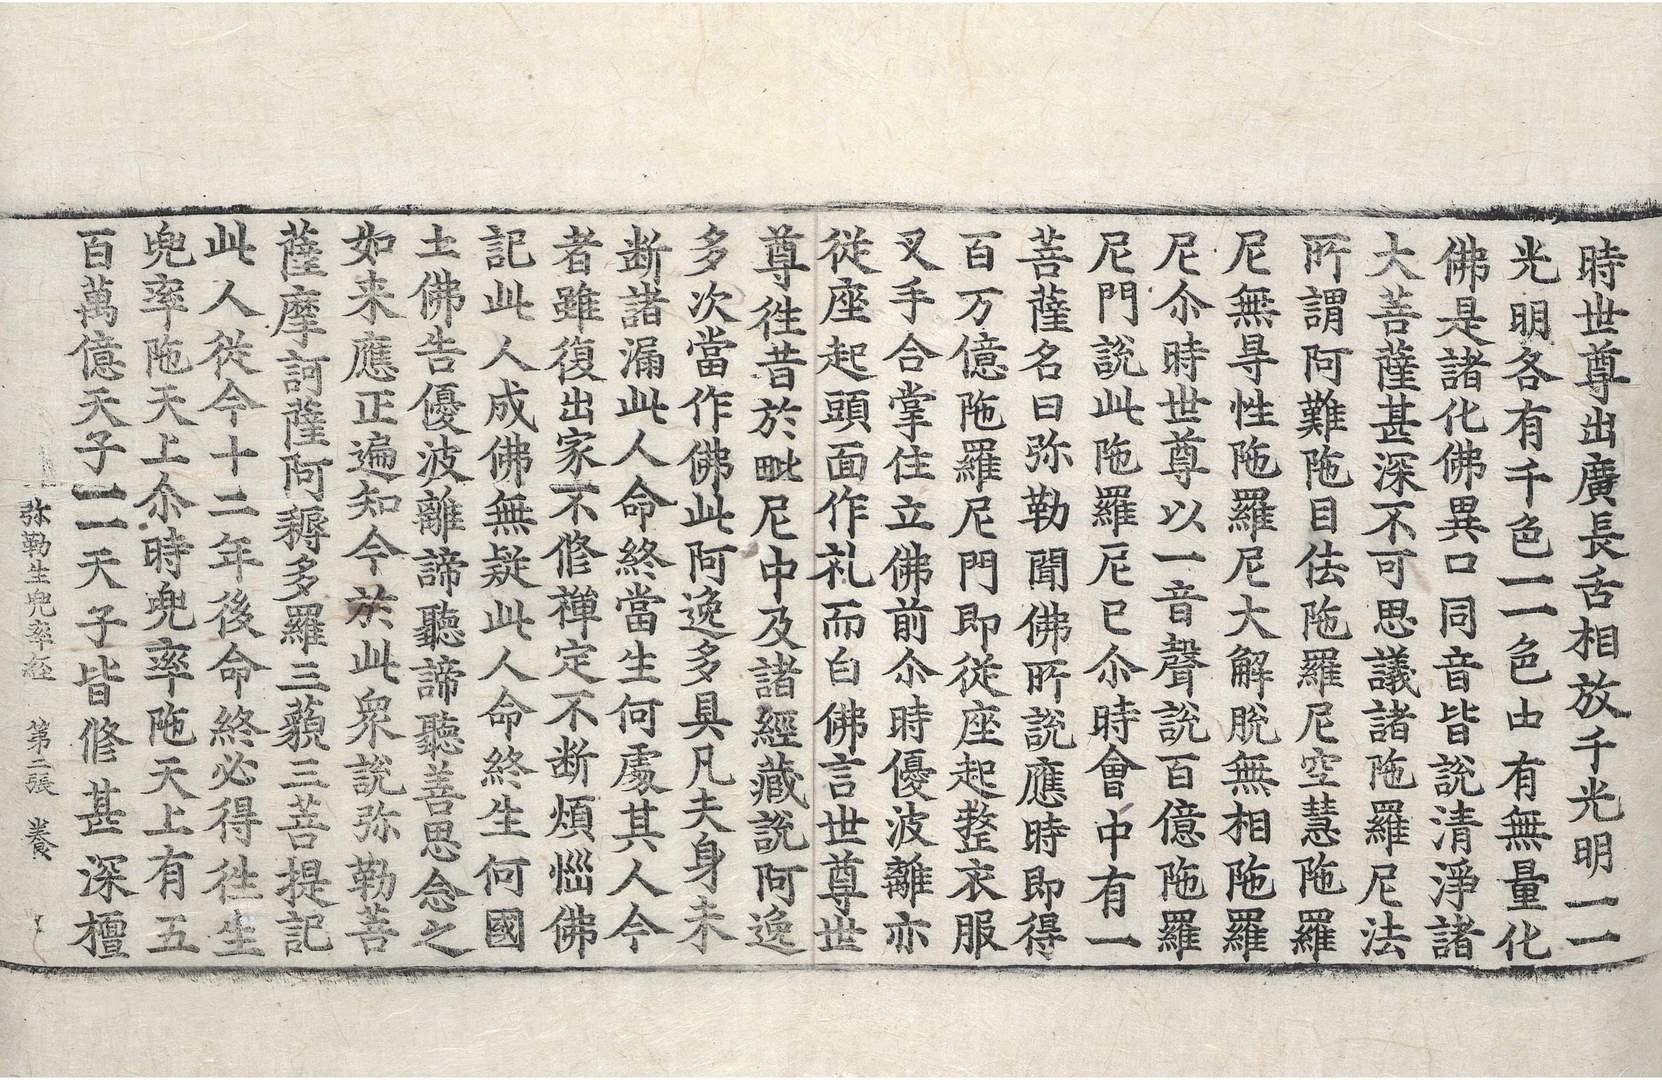 時世尊出廣長舌相放千光明一一
光明各有千色一一色中有無量化
佛是諸化佛異口同音皆說清淨諸
大菩薩甚深不可思議諸陁羅尼法
所謂阿難陁目佉陁羅尼空慧陁羅
尼無㝵性陁羅尼大解脫無相陁羅
尼尒時世尊以一音聲說百億陁羅
尼門說此陁羅尼已尒時會中有一
菩薩名曰弥勒聞佛所說應時即得
百万億陁羅尼門即從座起整衣服
叉手合掌住立佛前尒時優波離亦
從座起頭面作礼而白佛言世尊世
尊徃昔於毗尼中及諸經藏說阿逸
多次當作佛此阿逸多具凡夫身未
断諸漏此人命終當生何處其人今
者雖復出家不修禪定不断煩惱佛
記此人成佛無疑此人命終生何國
土佛告優波離諦聽諦聽善思念之
如来應正遍知今於此衆說弥勒菩
薩摩訶薩阿耨多羅三藐三菩提記
此人從今十二年後命終必得徃生
兜率陁天上尒時兜率陁天上有五
百萬億天子一一天子皆修甚深檀
弥勒生兜率経 第二張 養